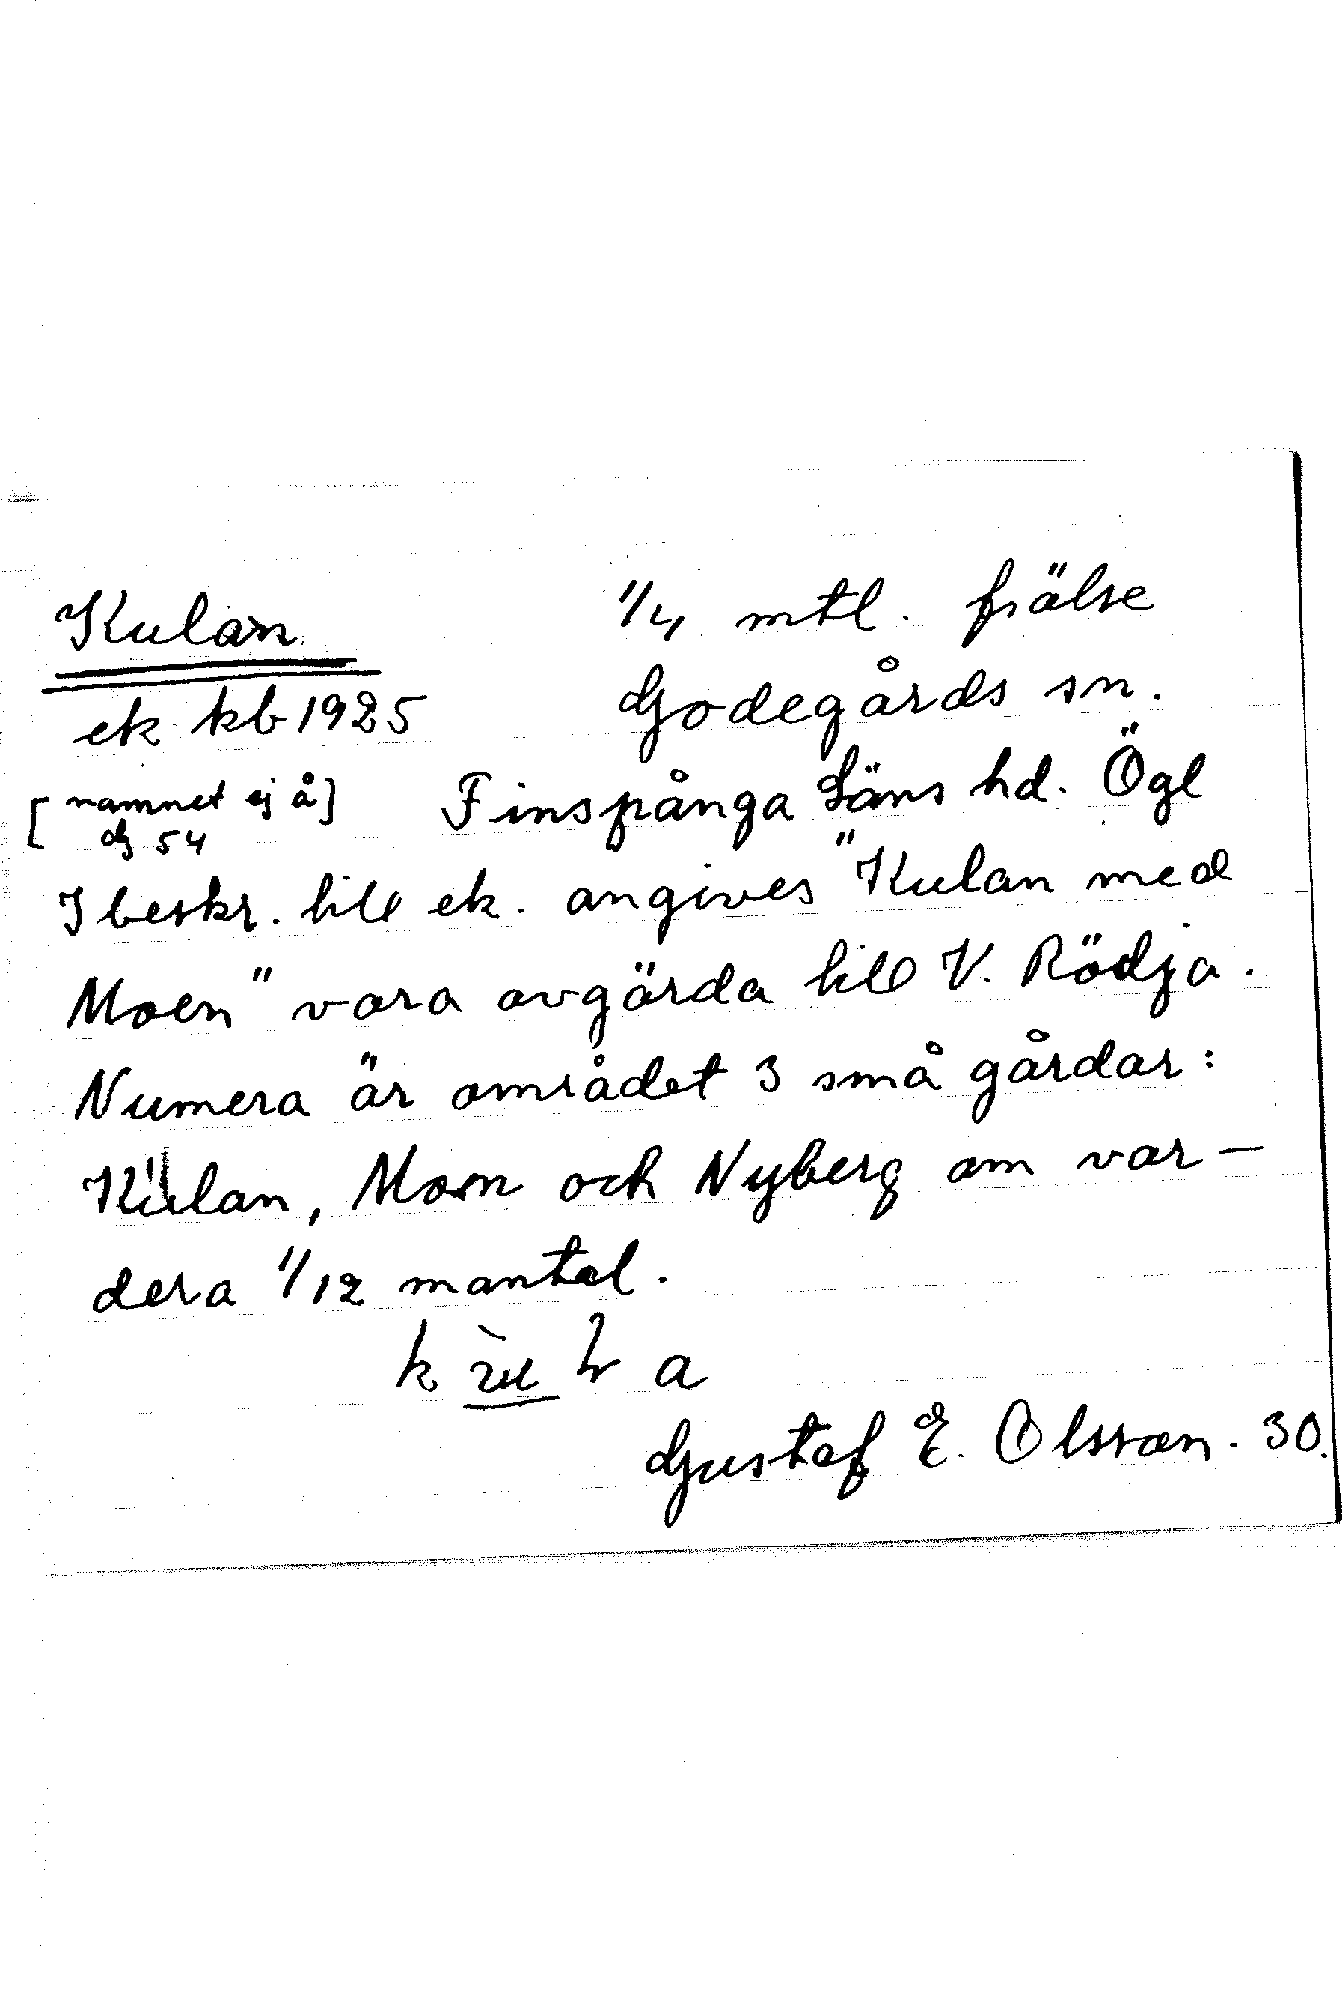 Kulan 1/4 mtl. frälse
ek kb 1925 Godegårds sn.
[namnet ej å] Finspånga Läns hd. Ögl
I beskr. till ek. angives "Kulan med
Moen" vara avgärda till V. Rödja.
Numera är området 3 små gårdar:
Kulan, Moen och Nyberg om var-
dera 1/12 mantal.
Gustaf E. Olsson. 30.